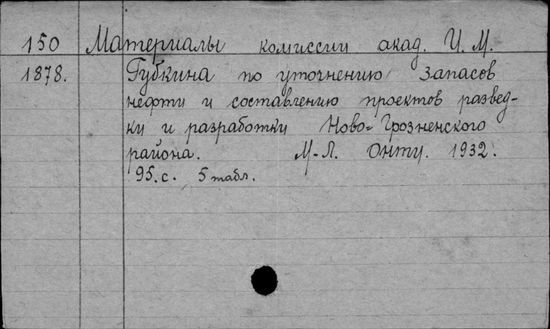 150 Материалы комиссии акад. И. М.
1878. Губкина по уточнению запасов
нефти и составлению проектов развед-
ки и разработки Ново-Грозненского
района. М-Л. Онти. 1932.
95.с. 5 табл.